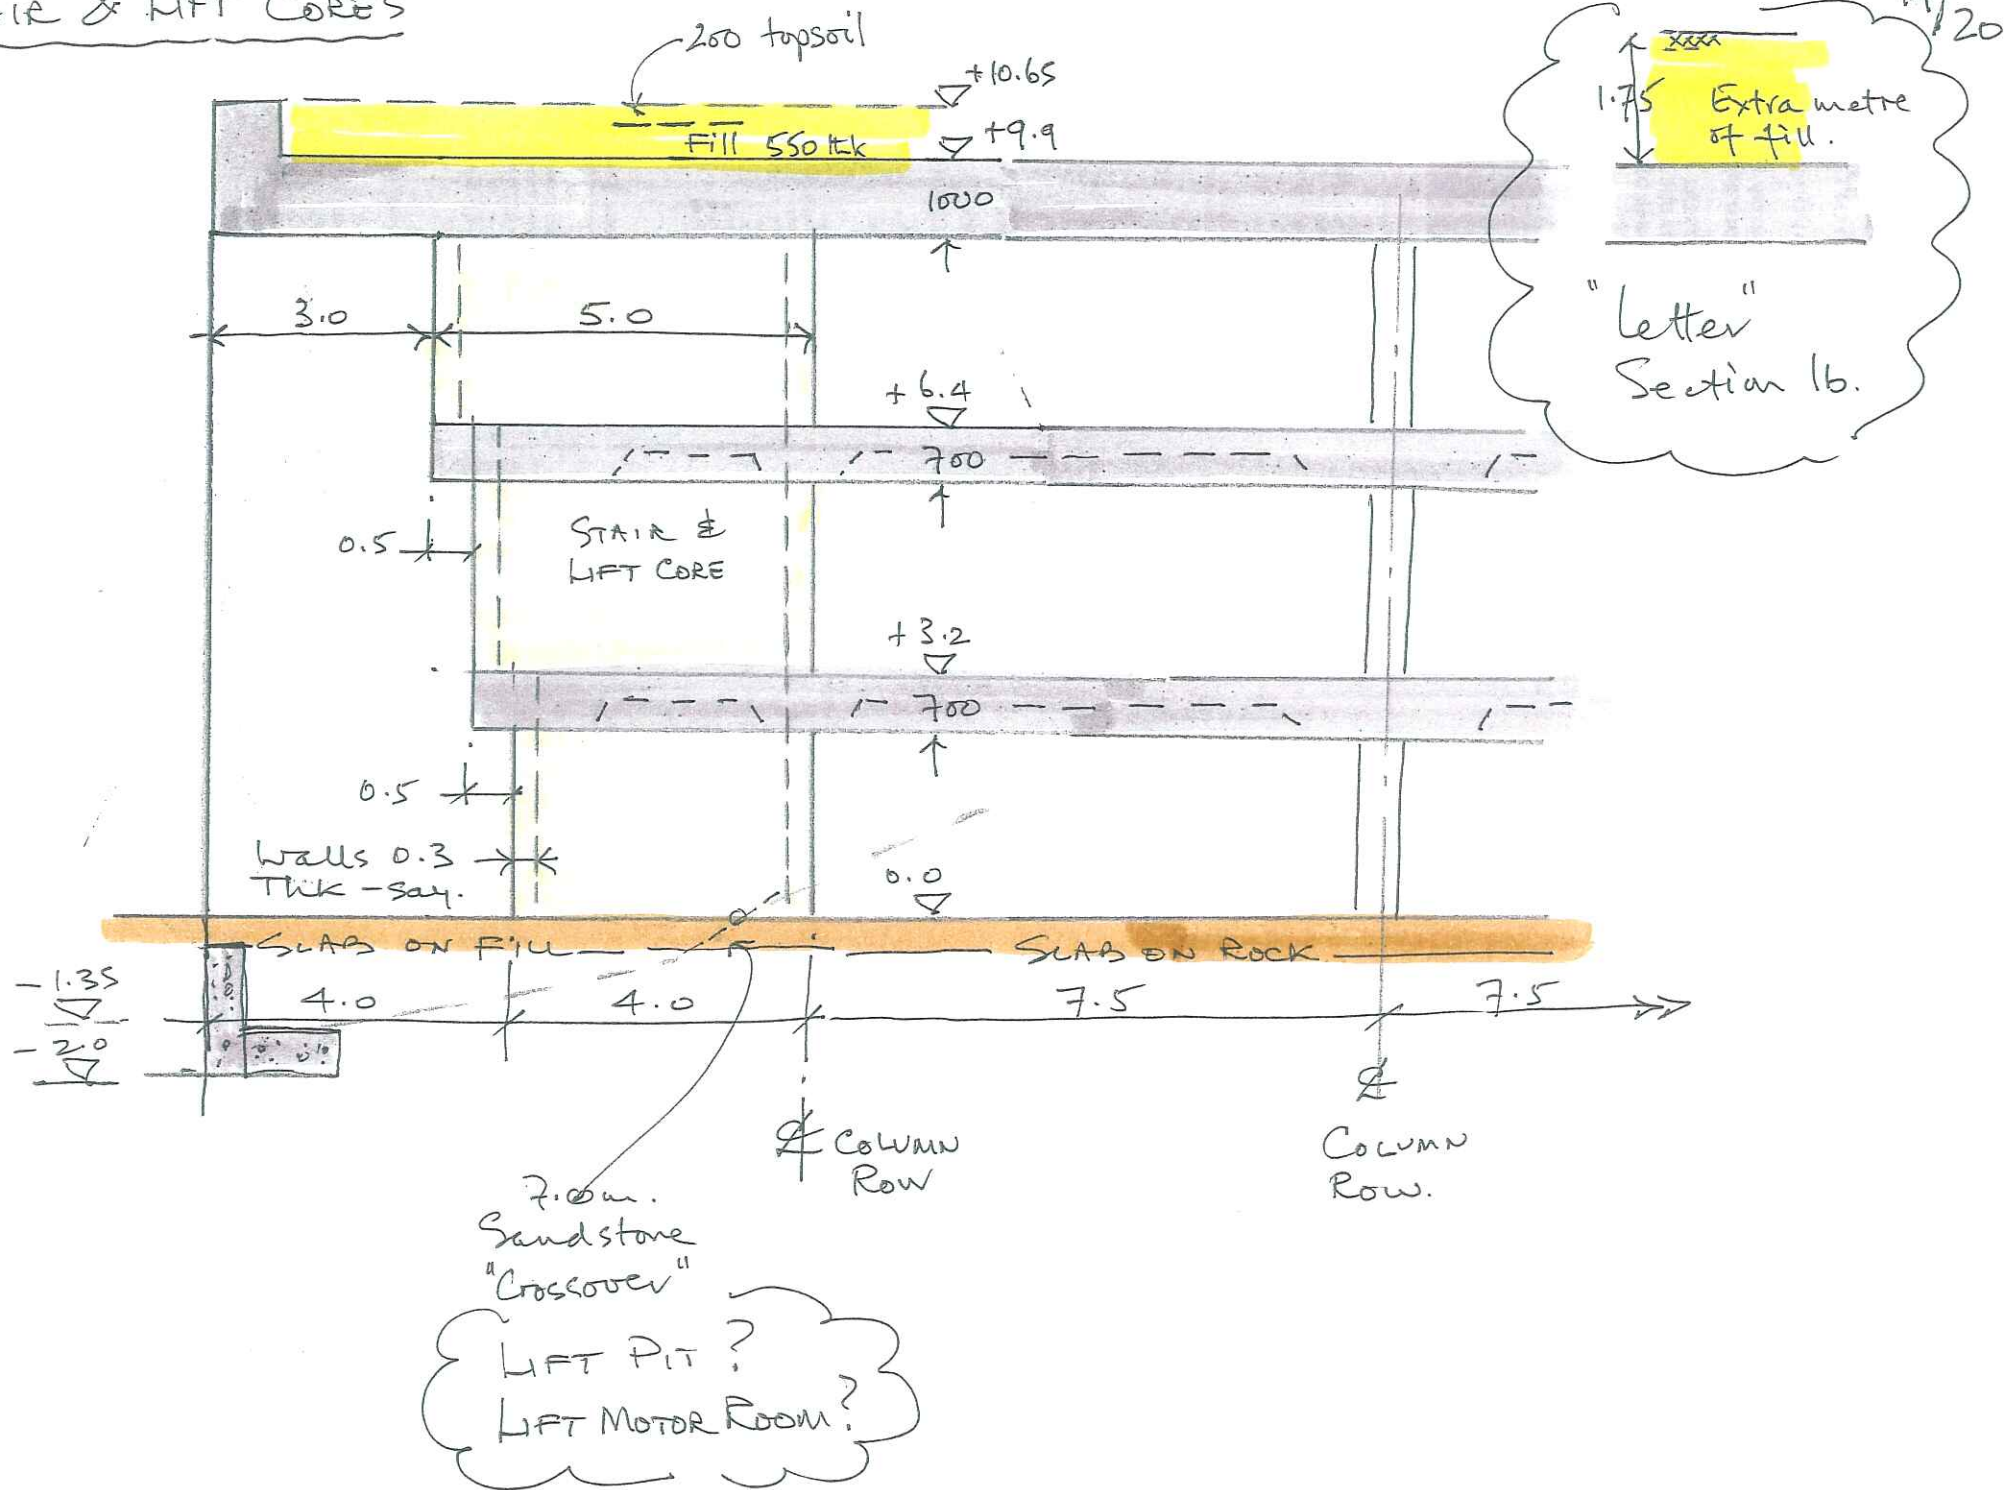 & LIFT CORES
/20
200 topsoil
+10.65
+9.9
Fill 550 thk
1000
1.75
Extra metre
of fill.
"Letter"
Section 1b.
3.0
5.0
+6.4
700
0.5
STAIR &
LIFT CORE
+3.2
700
0.5
Walls 0.3
THK - say.
0.0
SLAB ON FILL
SLAB ON ROCK
-1.35
-2.0
4.0
4.0
7.5
7.5
℄ COLUMN
ROW
℄
COLUMN
ROW.
7.0m.
Sandstone
"Crossover"
LIFT PIT?
LIFT MOTOR ROOM?